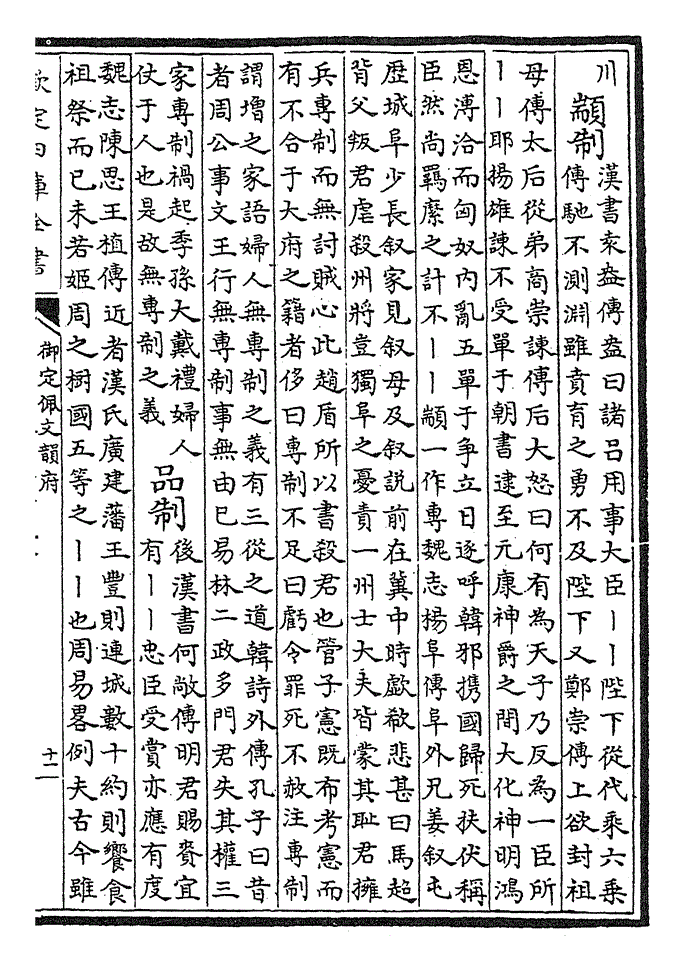 川
顓制
漢書袁盎傳盎曰諸呂用事大臣丨丨陛下從代乘六乘
傳馳不測淵雖賁育之勇不及陛下又鄭崇傳上欲封祖
母傅太后從弟商崇諫傅后大怒曰何有為天子乃反為一臣所
丨丨耶揚雄諫不受單于朝書逮至元康神爵之間大化神明鴻
恩溥洽而匈奴內亂五單于爭立日逐呼韓邪携國歸死扶伏稱
臣然尚羈縻之計不丨丨顓一作專魏志揚阜傳阜外兄姜叙屯
歷城阜少長叙家見叙母及叙說前在冀中時歔欷悲甚曰馬超
背父叛君虐殺州將豈獨阜之憂責一州士大夫皆蒙其恥君擁
兵專制而無討賊心此趙盾所以書殺君也管子憲既布考憲而
有不合于大府之籍者侈曰專制不足曰虧令罪死不赦注專制
謂增之家語婦人無專制之義有三從之道韓詩外傳孔子曰昔
者周公事文王行無專制事無由已易林二政多門君失其權三
家專制禍起季孫大戴禮婦人
仗于人也是故無專制之義
品制
後漢書何敞傳明君賜賚宜
有丨丨忠臣受賞亦應有度
魏志陳思王植傳近者漢氏廣建藩王豐則連城數十約則饗食
祖祭而已未若姬周之樹國五等之丨丨也周易畧例夫古今雖
欽定四庫全書
御定佩文韻府
十二